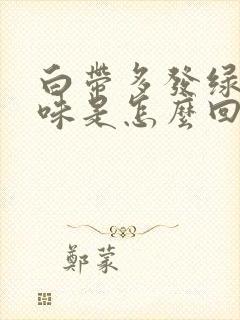 白帶多發綠
味是怎麼回
鄭蒙